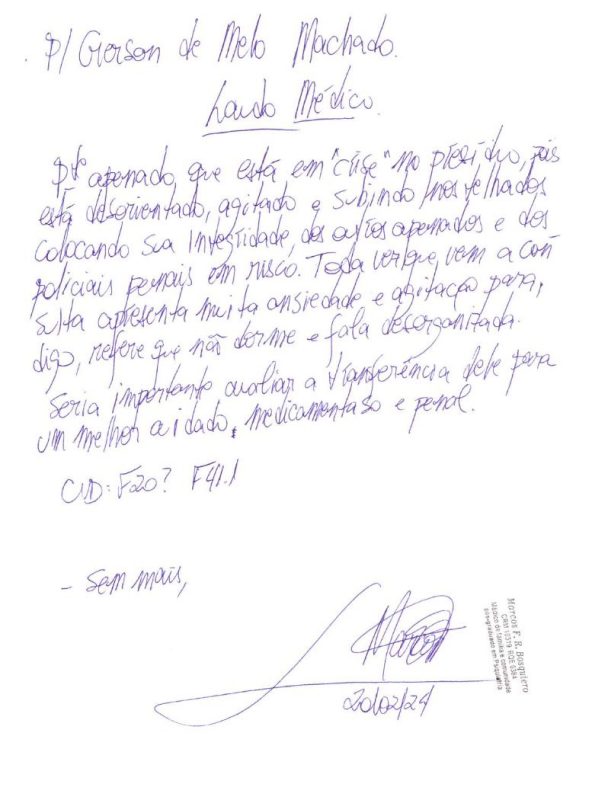 P/ Gerson de Melo Machado.
Laudo Médico.
Pte apenado, que está em "crise" no presídio, pois
está desorientado, agitado e subindo nos telhados
colocando sua investidade, dos outros apenados e dos
policiais penais em risco. Toda vez que, vem a con
sulta apresenta muita ansiedade e agitação para,
digo, refere que não dorme e fala desorganizada.
Seria importante avaliar a transferência dele para
um melhor cuidado, medicamentoso e penal.
CID: F20? F41.1
- Sem mais,
Marcos F. R. Bosquiero
CRM 10519 RQE 6384
Médico de família e comunidade
pós-graduado em Psiquiatria
20/02/24